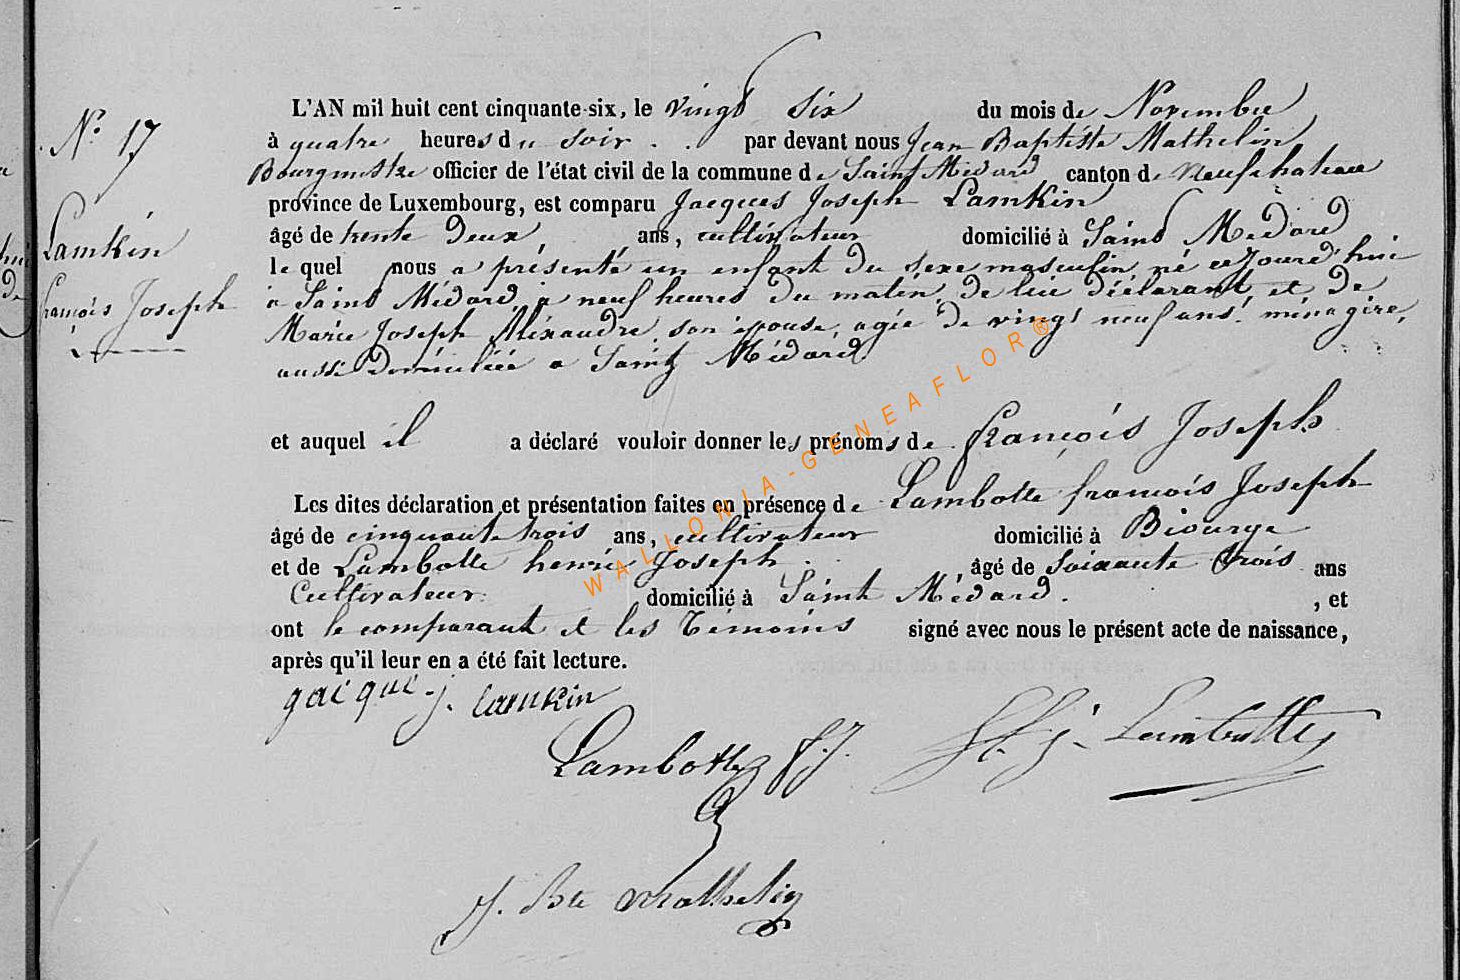 N.° 17
Lamkin
françois Joseph
L'AN mil huit cent cinquante-six, le vingt six du mois de Novembre
à quatre heures du soir . . par devant nous Jean Baptiste Mathelin
Bourgmestre officier de l'état civil de la commune de Saint Médard canton de Neufchateau
province de Luxembourg, est comparu Jacques Joseph Lamkin
âgé de trente deux ans, cultivateur domicilié à Saint Médard
le quel nous a présenté un enfant du sexe masculin, né cejourd'hui
a Saint Médard, a neuf heures du matin, de lui déclarant, et de
Marie Joseph Alexandre, son épouse, agée de vingt neuf ans, ménagère,
aussi domiciliée a Saint Médard.
et auquel il a déclaré vouloir donner les prénoms de françois Joseph
Les dites déclaration et présentation faites en présence de Lambotte francois Joseph
âgé de cinquante trois ans, cultivateur domicilié à Biourge
et de Lambotte henri Joseph . âgé de soixante trois ans
Cultivateur. domicilié à Saint Médard. , et
ont le comparant et les témoins signé avec nous le présent acte de naissance,
après qu'il leur en a été fait lecture.
jacque j. lamkin
Lambotte f. J.
H. j. Lambotte
J. Bte Mathelin
WALLONIA-GENEAFLOR®